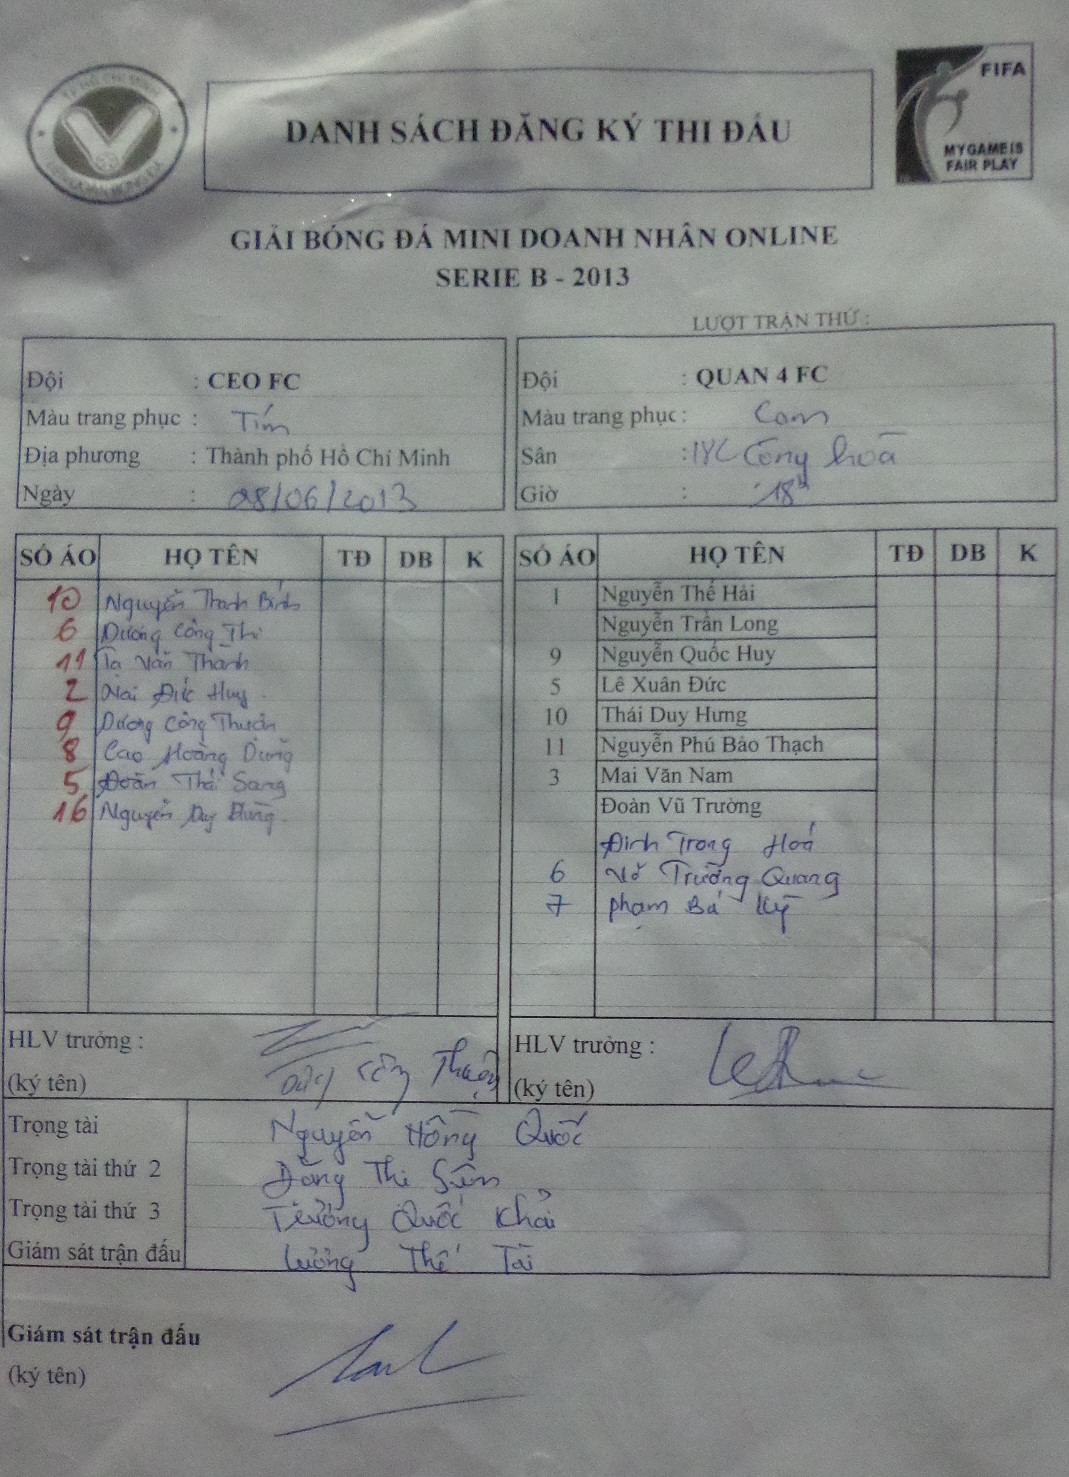 DANH SÁCH ĐĂNG KÝ THI ĐẤU
FIFA
MY GAME IS
FAIR PLAY
TP HỒ CHÍ MINH
GIẢI BÓNG ĐÁ MINI DOANH NHÂN ONLINE
SERIE B - 2013
LƯỢT TRẬN THỨ :
Đội : CEO FC
Màu trang phục : Tím
Địa phương : Thành phố Hồ Chí Minh
Ngày : 08/06/2013
Đội : QUAN 4 FC
Màu trang phục : Cam
Sân : Cộng hoà
Giờ : 18h
SỐ ÁO HỌ TÊN TĐ DB K
10 Nguyễn Thanh Bình
6 Dương Công Thi
11 Tạ Văn Thành
2 Mai Đức Huy
9 Dương Công Thuận
8 Cao Hoàng Dũng
5 Đoàn Thái Sang
16 Nguyễn Duy
SỐ ÁO HỌ TÊN TĐ DB K
1 Nguyễn Thế Hải
Nguyễn Trần Long
9 Nguyễn Quốc Huy
5 Lê Xuân Đức
10 Thái Duy Hưng
11 Nguyễn Phú Bảo Thạch
3 Mai Văn Nam
Đoàn Vũ Trường
Đinh Trọng Hoá
6 Võ Trường Quang
7 Phạm Bá Kỳ
HLV trưởng :
(ký tên) Thuận
HLV trưởng :
(ký tên)
Trọng tài Nguyễn Hồng Quốc
Trọng tài thứ 2 Đặng Thi
Trọng tài thứ 3 Trương Quốc Khải
Giám sát trận đấu Lương Thế Tài
Giám sát trận đấu
(ký tên)